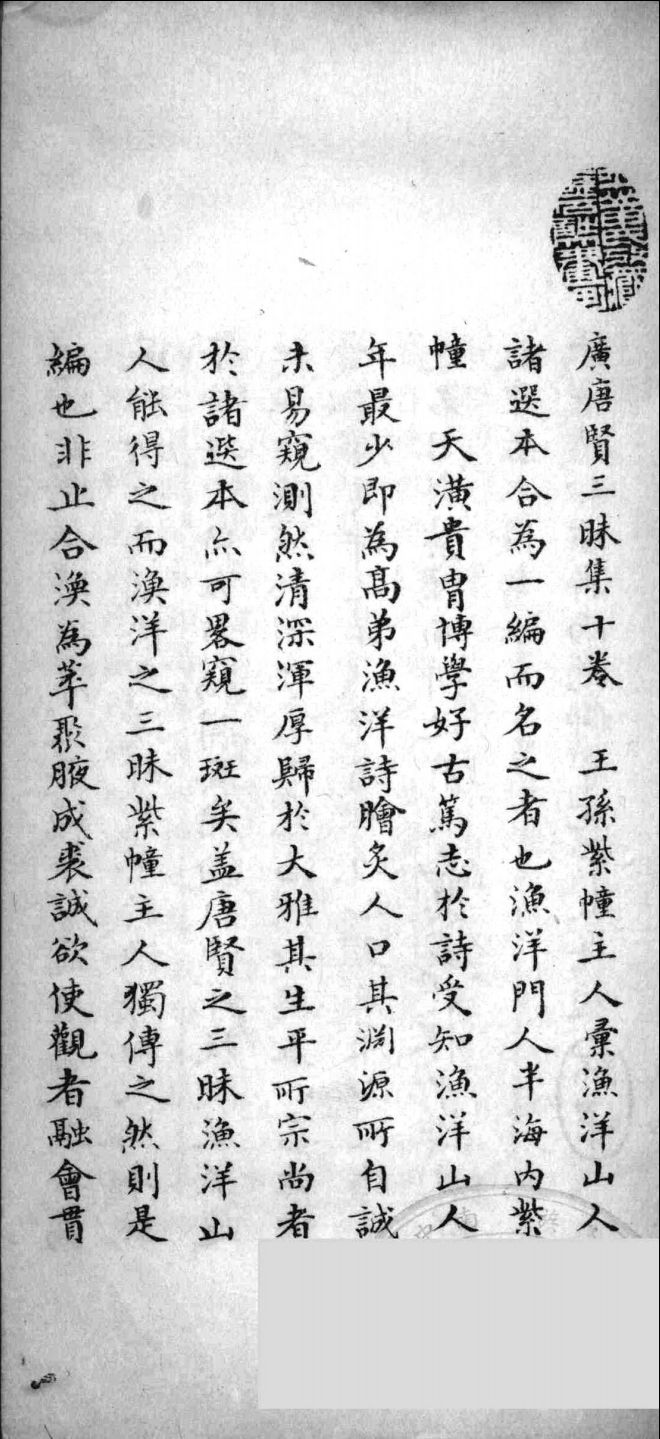 廣唐賢三昧集十卷　王孫紫幢主人彙漁洋山人
諸選本合為一編而名之者也漁洋門人半海內紫
幢　天潢貴胄博學好古篤志於詩受知漁洋山人
年最少即為高弟漁洋詩膾炙人口其淵源所自誠
未易窺測然清深渾厚歸於大雅其生平所宗尚者
於諸選本亦可畧窺一斑矣盖唐賢之三昧漁洋山
人能得之而漁洋之三昧紫幢主人獨傳之然則是
編也非止合渙為萃聚腋成裘誠欲使觀者融會貫